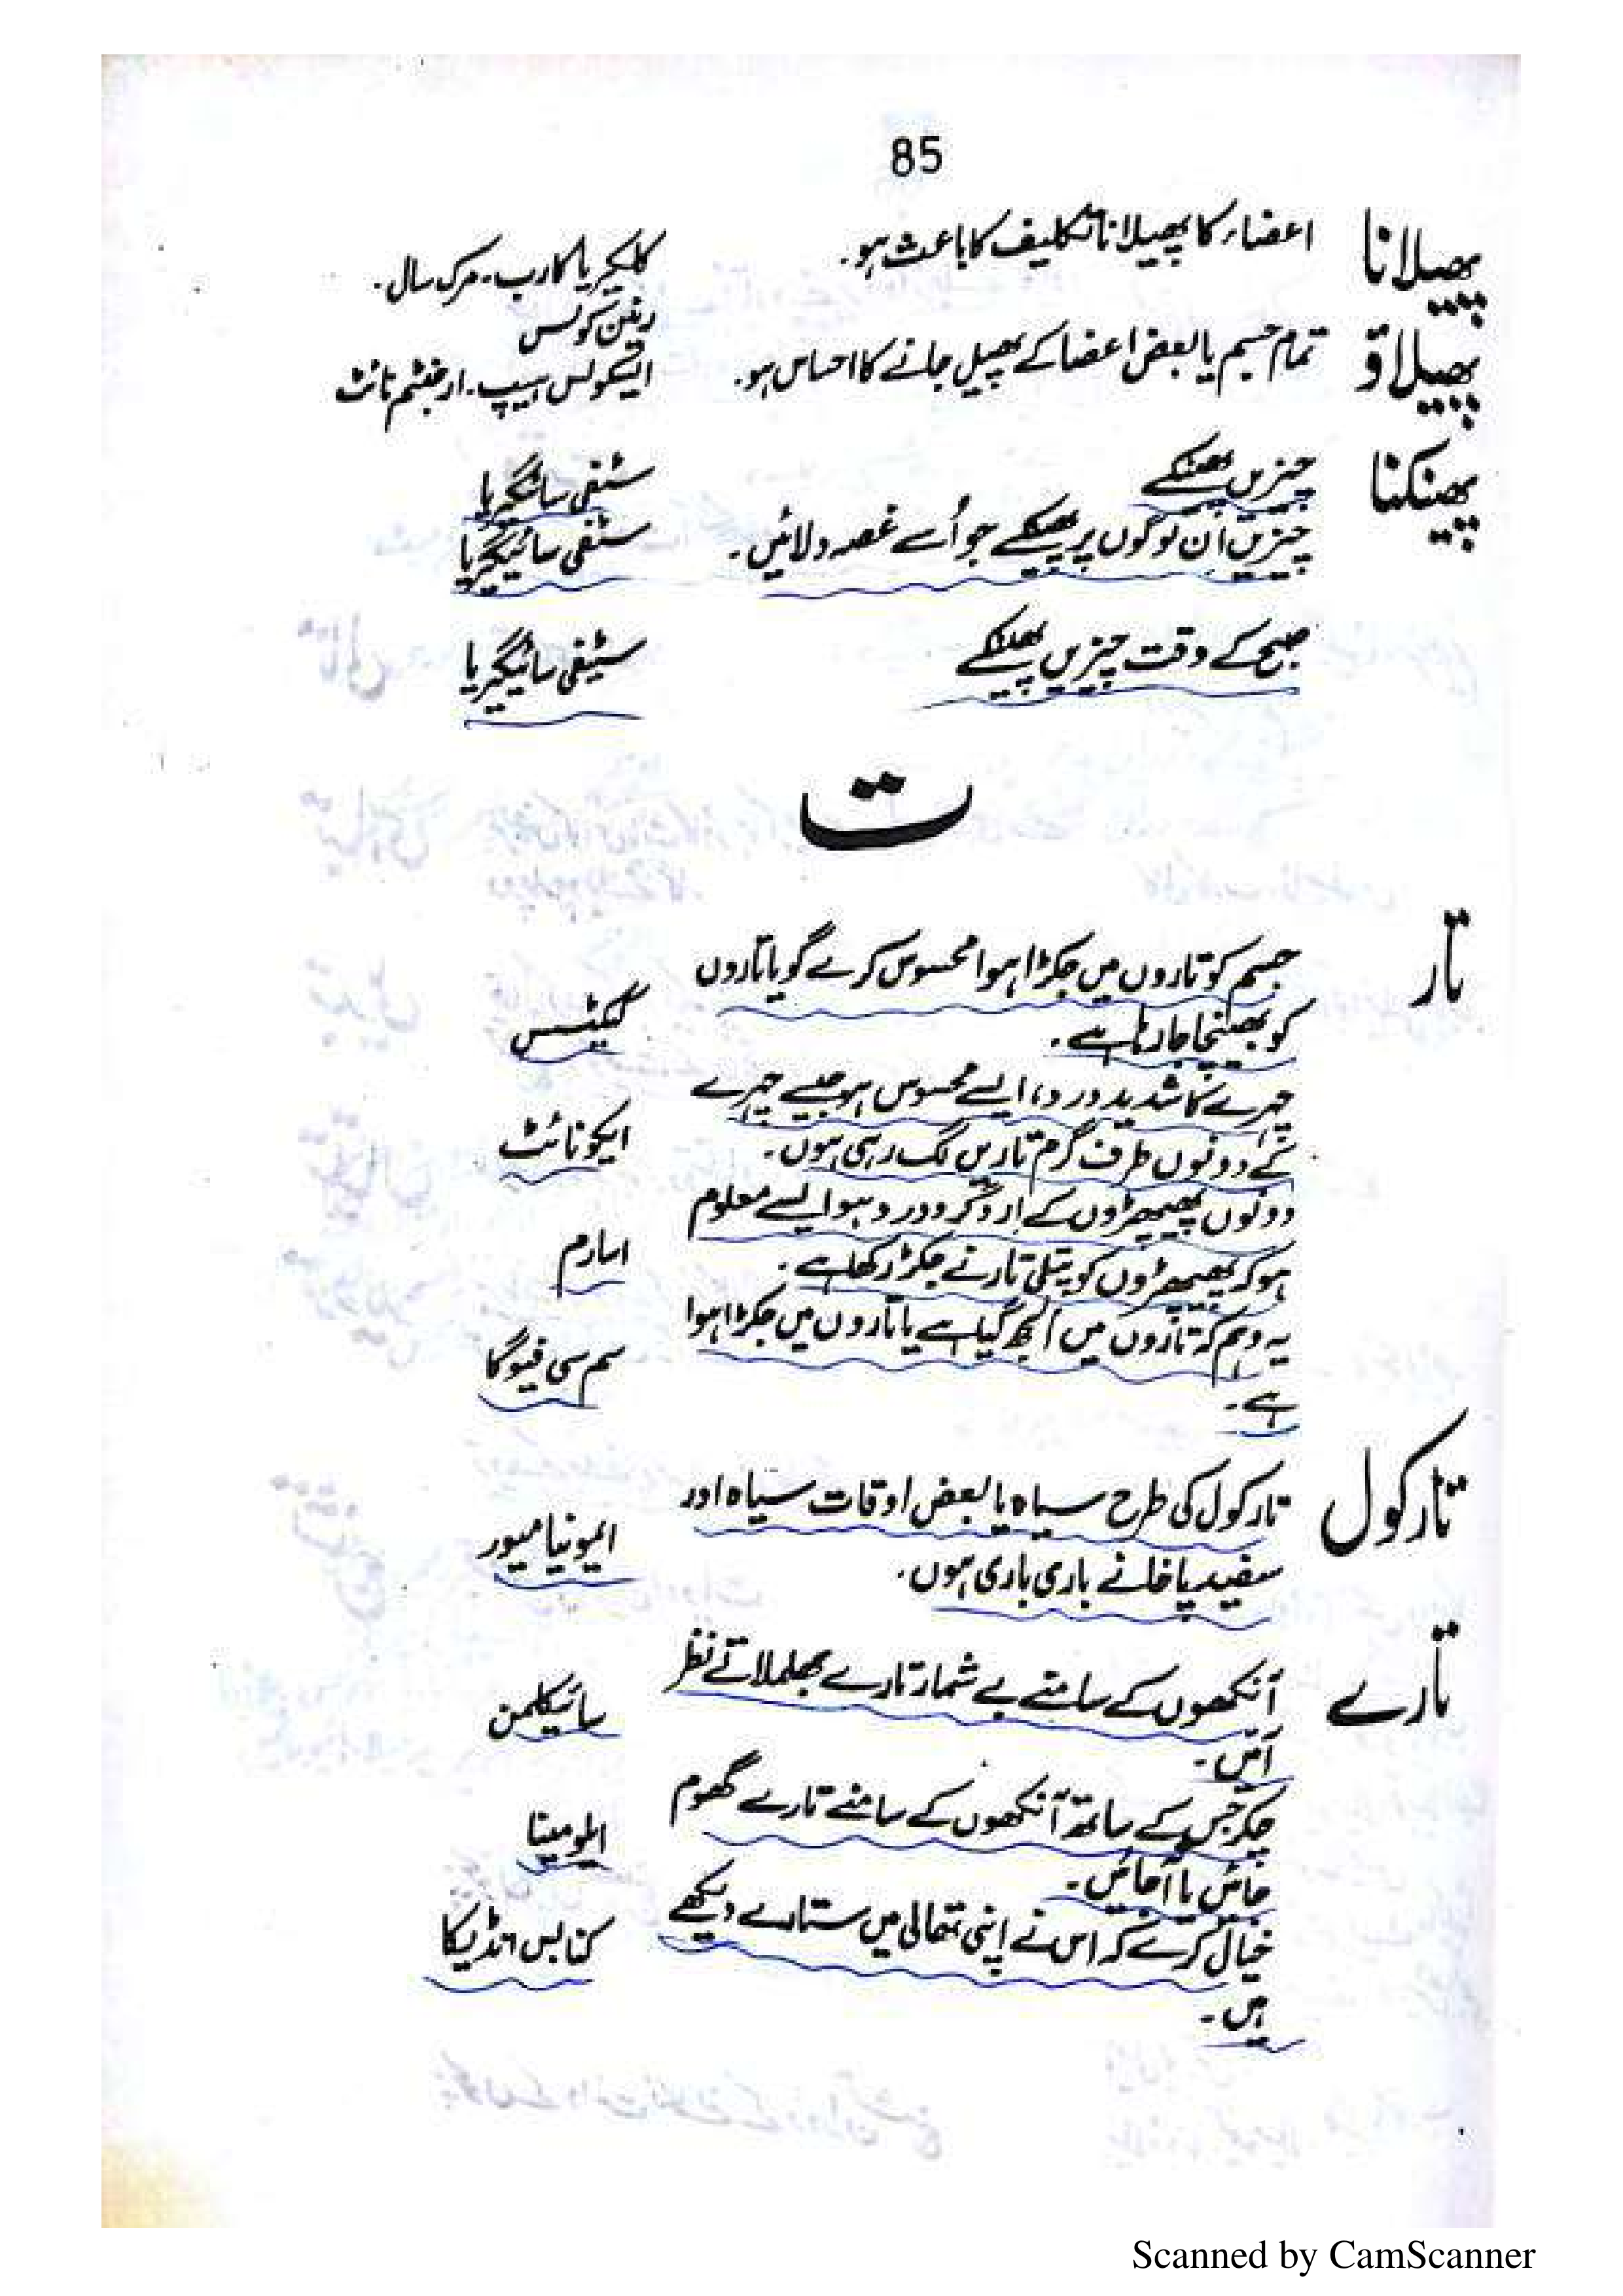 85
پھیلانا اعضاء کا پھیلانا تکلیف کا باعث ہو۔ کلکیریا کارب۔ مرک سال۔
رینن کولس
پھیلاؤ تمام جسم یا بعض اعضا کے پھیل جانے کا احساس ہو۔ ایسکولس ہیپ۔ ارجنٹم نائٹ
پھینکنا چیزیں پھینکے سٹفی سائیگریا
چیزیں اُن لوگوں پر پھینکے جو اُسے غصہ دلائیں۔ سٹفی سائیگیریا
صبح کے وقت چیزیں پھینکے سٹیفی سائیگیریا
ت
تار جسم کو تاروں میں جکڑا ہوا محسوس کرے گویا تاروں
کو بھینچا جا رہا ہے۔ کیکٹس
چہرے کا شدید درد، ایسے محسوس ہو جیسے چہرے
کے دونوں طرف گرم تاریں لگ رہی ہوں۔ ایکونائٹ
دونوں پھیپھڑوں کے اردگرد درد ہو ایسے معلوم
ہو کہ پھیپھڑوں کو پتلی تار نے جکڑ رکھا ہے۔ اسارم
یہ وہم کہ تاروں میں اُلجھ گیا ہے یا تاروں میں جکڑا ہوا
ہے۔ سم سی فیوگا
تارکول تارکول کی طرح سیاہ یا بعض اوقات سیاہ اور
سفید پاخانے باری باری ہوں۔ ایمونیا میور
تارے آنکھوں کے سامنے بے شمار تارے جھلملاتے نظر
آئیں۔ سائیکلمن
چکر جس کے ساتھ آنکھوں کے سامنے تارے گھوم
جائیں یا آ جائیں۔ ایلومینا
خیال کرے کہ اس نے اپنی تھالی میں ستارے دیکھے
ہیں۔ کنابس انڈیکا
Scanned by CamScanner